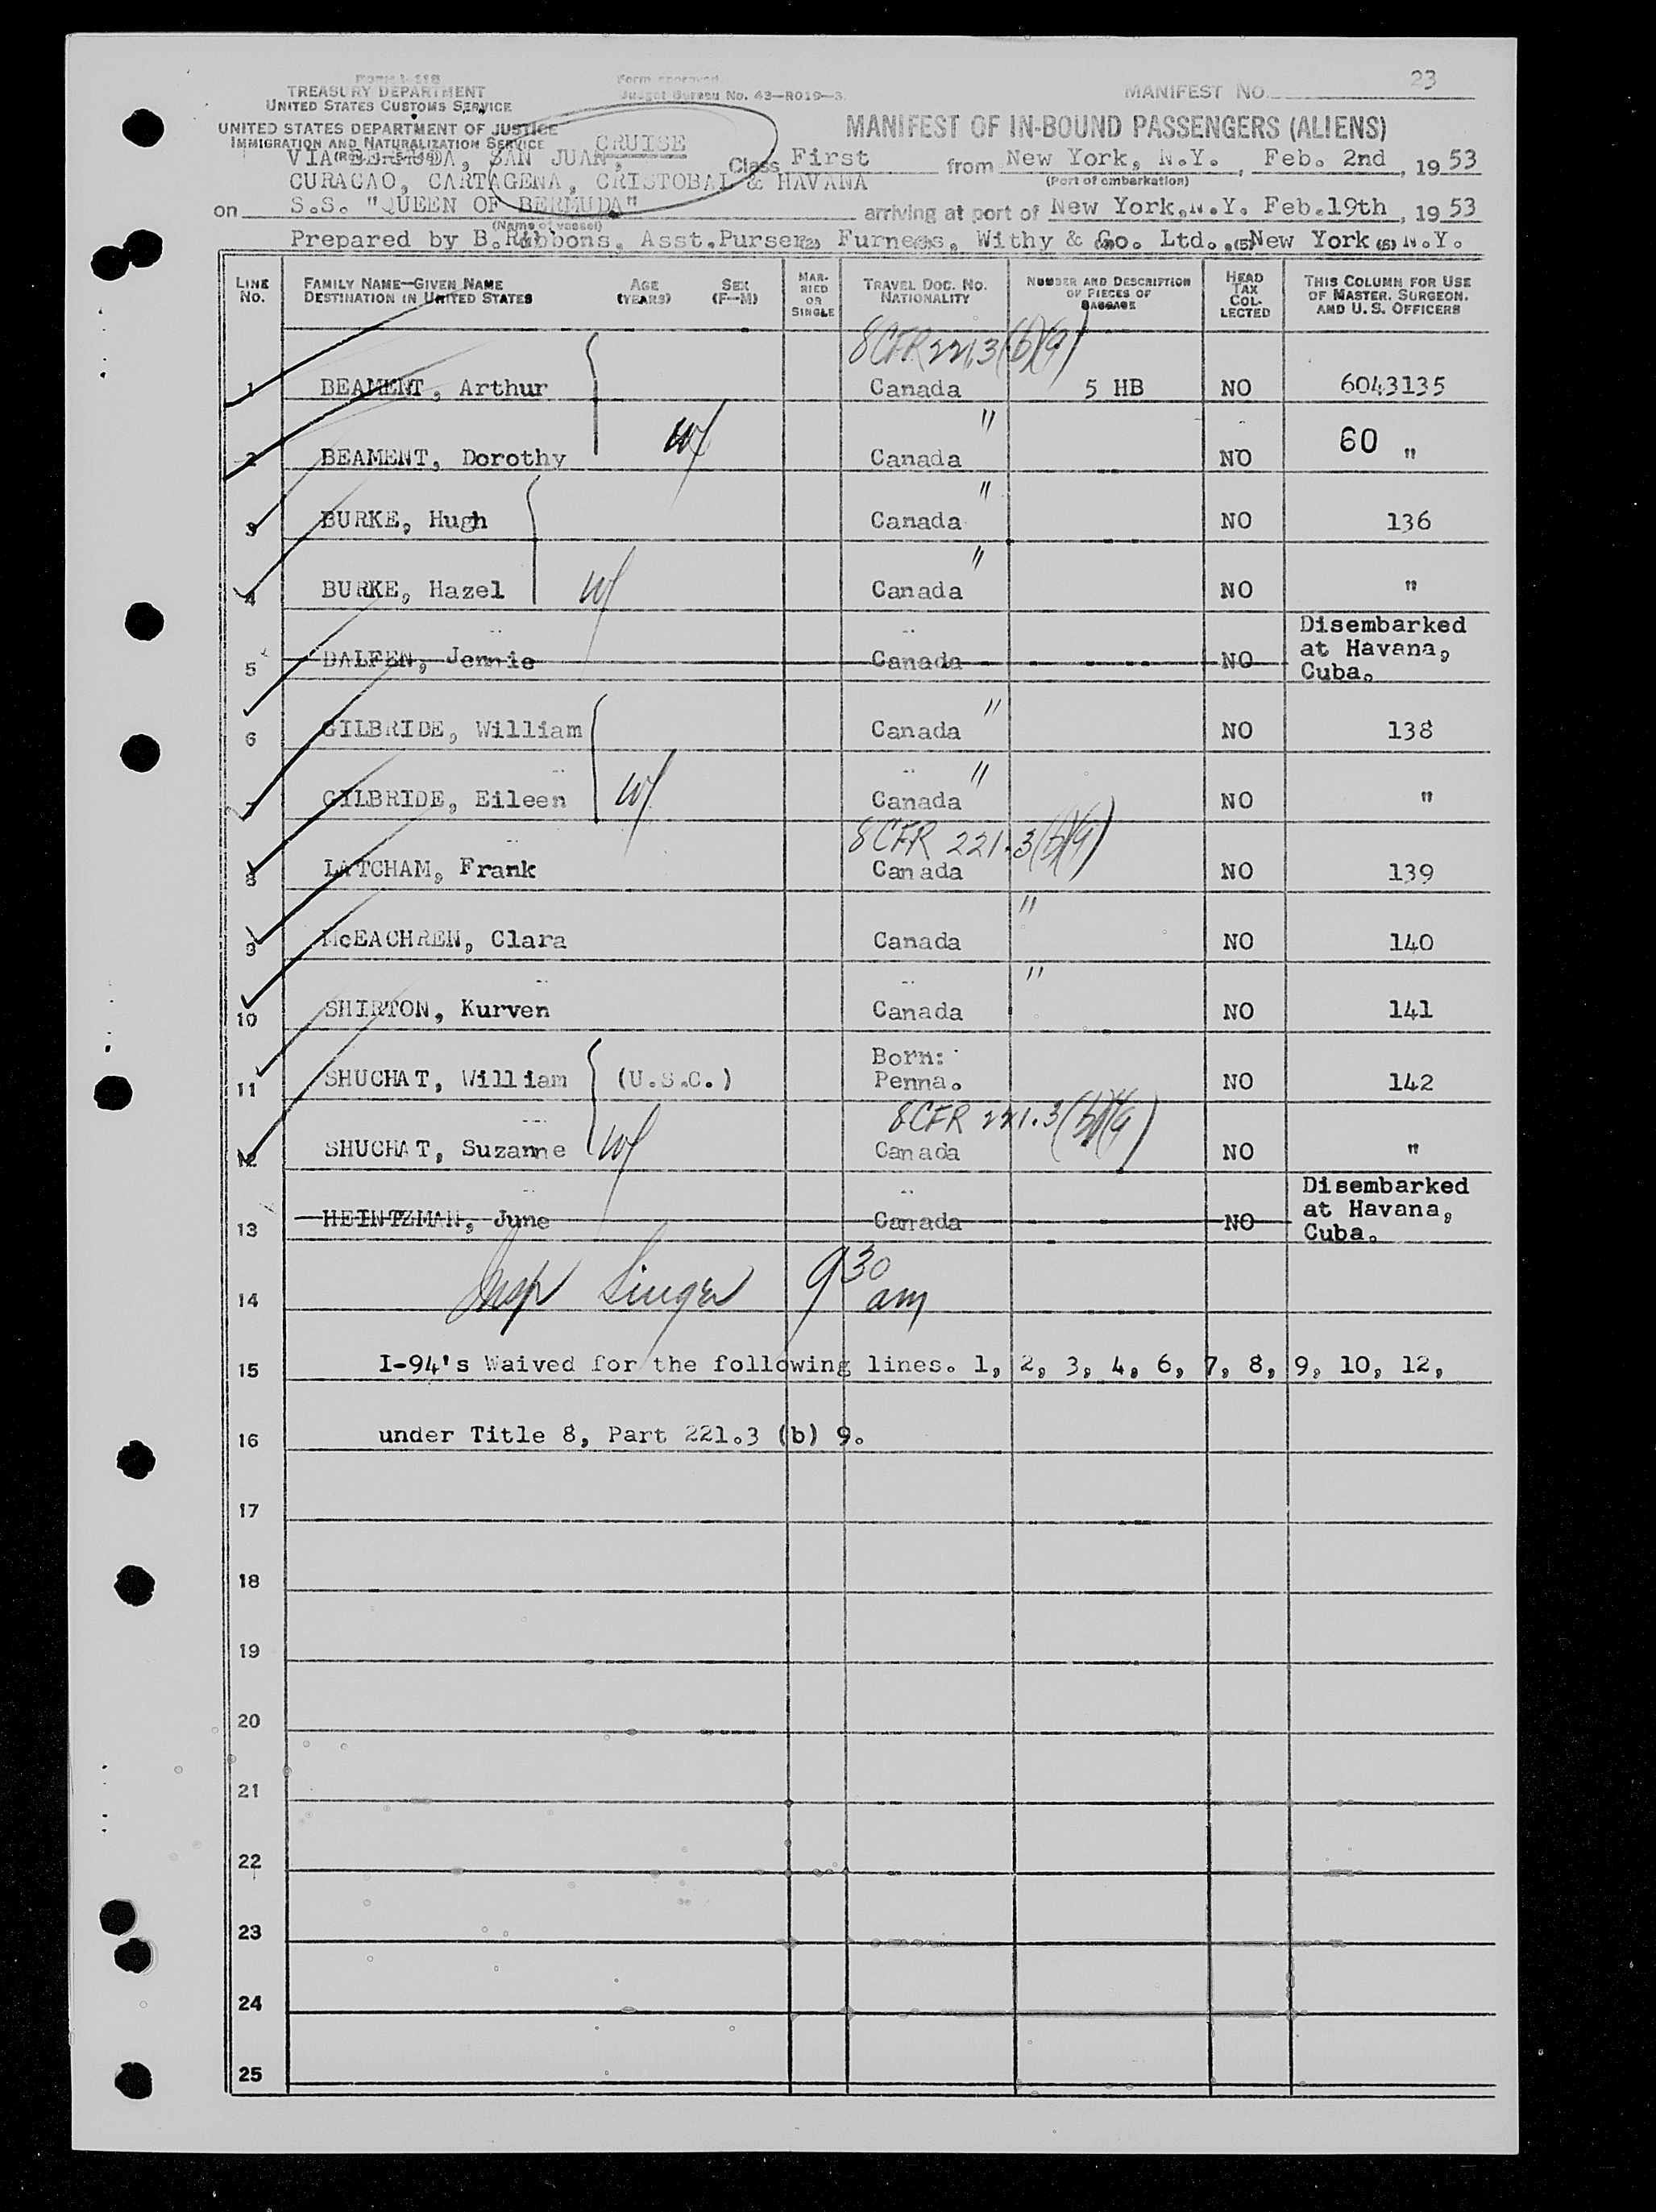 Form I-418
TREASURY DEPARTMENT
UNITED STATES CUSTOMS SERVICE
Form approved.
Budget Bureau No. 43—R019—3.
MANIFEST NO. 23
UNITED STATES DEPARTMENT OF JUSTICE
IMMIGRATION AND NATURALIZATION SERVICE
MANIFEST OF IN-BOUND PASSENGERS (ALIENS)
CRUISE
VIA BERMUDA, SAN JUAN, Class First from New York, N.Y., Feb. 2nd, 1953
(Port of embarkation)
CURACAO, CARTAGENA, CRISTOBAL & HAVANA
on S.S. "QUEEN OF BERMUDA" arriving at port of New York,N.Y. Feb.19th, 1953
(Name of vessel)
Prepared by B.Ribbons, Asst.Purser, Furness, Withy & Co. Ltd., New York N.Y.
(2) (5) (6)
LINE NO. FAMILY NAME—GIVEN NAME DESTINATION IN UNITED STATES AGE (YEARS) SEX (F—M) MARRIED OR SINGLE TRAVEL DOC. NO. NATIONALITY NUMBER AND DESCRIPTION OF PIECES OF BAGGAGE HEAD TAX COLLECTED THIS COLUMN FOR USE OF MASTER, SURGEON, AND U. S. OFFICERS
8 CFR 221.3(b)(9)
1 BEAMENT, Arthur Canada 5 HB NO 6043135
"
2 BEAMENT, Dorothy W/ Canada NO 60 "
"
3 BURKE, Hugh Canada NO 136
"
4 BURKE, Hazel W/ Canada NO "
5 DALFEN, Jennie Canada NO Disembarked at Havana, Cuba.
"
6 GILBRIDE, William Canada NO 138
"
7 GILBRIDE, Eileen W/ Canada NO "
8 CFR 221.3(b)(9)
8 LATCHAM, Frank Canada NO 139
"
9 McEACHREN, Clara Canada NO 140
"
10 SHIRTON, Kurven Canada NO 141
11 SHUCHAT, William (U.S.C.) Born: Penna. NO 142
8 CFR 221.3(b)(9)
12 SHUCHAT, Suzanne W/ Canada NO "
13 HEINTZMAN, June Canada NO Disembarked at Havana, Cuba.
14 Insp Singer 9 30 am
15 I-94's Waived for the following lines. 1, 2, 3, 4, 6, 7, 8, 9, 10, 12,
16 under Title 8, Part 221.3 (b) 9.
17
18
19
20
21
22
23
24
25